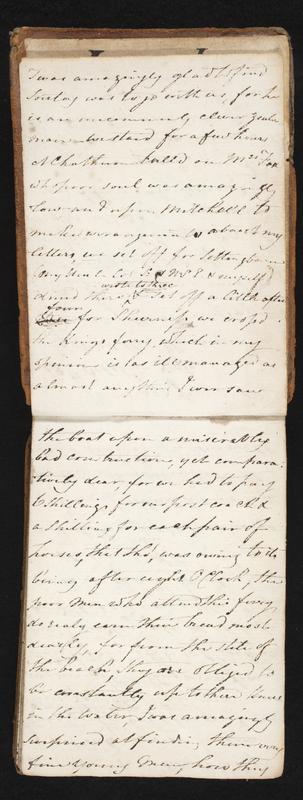 I was amazingly glad to find
Soutay was to go with us for he
is an uncommonly clever
man we staid for a few hours
At Chatham called on Mrs Fox
who poor soul was amazingly
low and upon Mitchell to
make arrangements about my
letters we set off for Sittingbourne
My Uncle Col: B & W & E & myself
wrote to thee
dined there & set off a little after
Seven
for Sheerness, we crossed
the Kings ferry which in my
opinion is as ill managed as
almost anything I ever saw
the boat upon a miserable
bad construction, yet compara
-tively dear, for we had to pay
6 Shillings for our post coach &
a shilling for each pair of
horses, that tho', was owing to its
being after eight O'Clock, the
poor Men who attend this ferry
do realy earn their bread most
dearly, for from the state of
the beach, they are obliged to
be constantly up to there knees
in the water I was amazingly
surprised at finding them very
fine young Men, how they